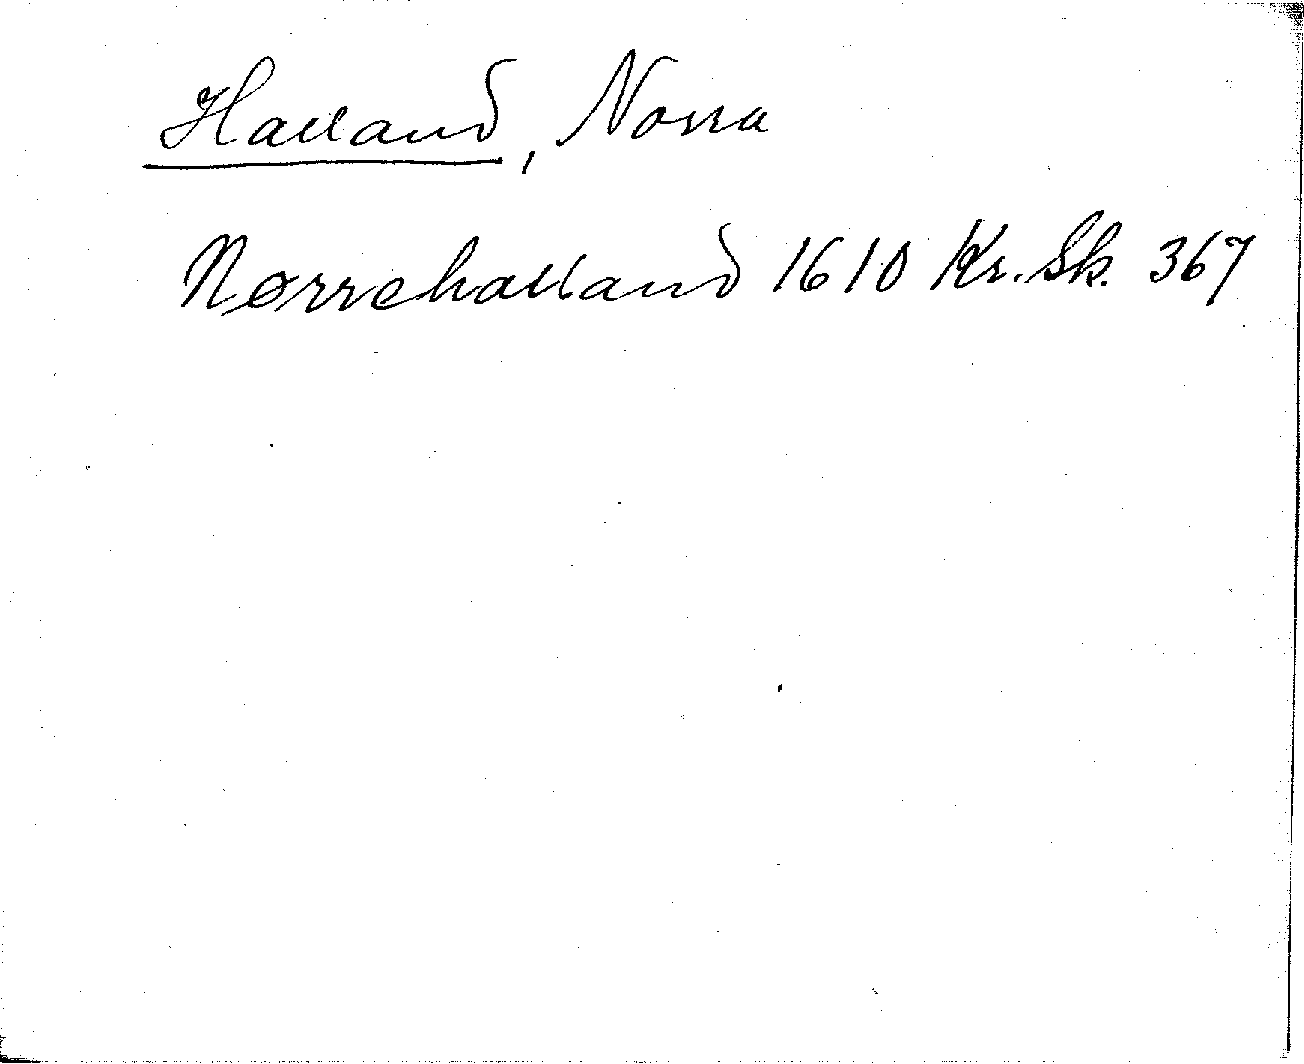 Halland, Norra
Nørrehalland 1610 Kr. Sk. 367